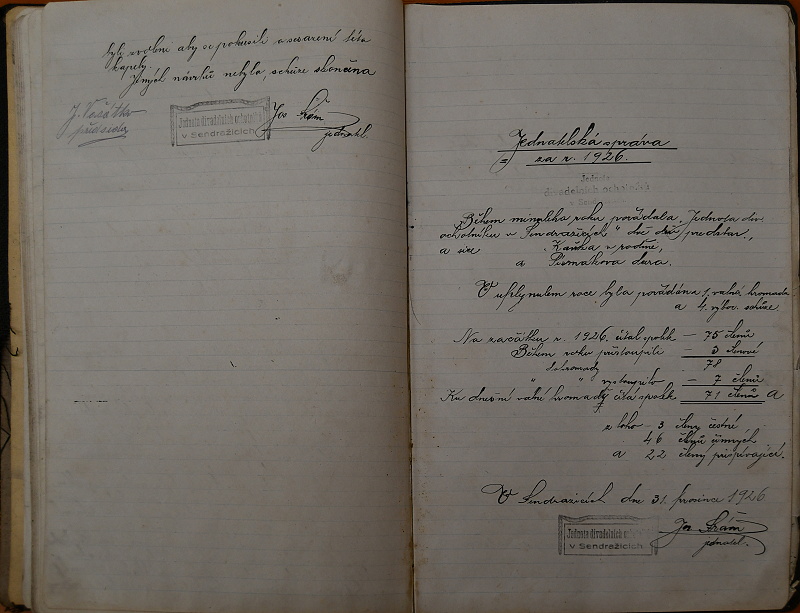 byli zvoleni aby se pokusili o sestavení této
kapely.
Jiných návrhů nebylo, schůze skončena
J. Vošátka
předseda
Jednota divadelních ochotníků
v Sendražicích
Jos Šrám
jednatel.
Jednatelská zpráva
za r. 1926.
Jednota
divadelních ochotníků
v
Během minulého roku pořádala "Jednota div.
ochotníků v Sendražicích" dvě div. představ.,
a sice Kaťka v rodině,
a Písmákova dcera.
V uplynulém roce byla pořádána 1. valná hromada
a 4. výbor. schůze.
Na začátku r. 1926. čítal spolek – 75 členů
Během roku přistoupili – 3 členové
Dohromady 78
" " vystoupilo – 7 členů
Ku dnešní valné hromadě čítá spolek 71 členů a
z toho – 3 členy čestné
46 členů činných
a 22 členy přispívající.
V Sendražicích dne 31. prosince 1926
Jednota divadelních ochotníků
v Sendražicích.
Jos Šrám
jednatel.